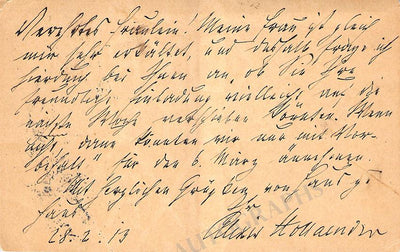 Verehrtes Fräulein! Meine Frau ist gleich
mir sehr erkältet, und deshalb frage ich
hierdurch bei Ihnen an, ob Sie Ihre
freundliche Einladung vielleicht auf die
nächste Woche verschieben könnten. Wenn
nicht, dann könnten wir nur mit „Vor-
behalt" für den 6. März annehmen.
Mit herzlichen Grüßen von Haus zu
Haus
Ihr
Alexis Hollaender
28.2.13